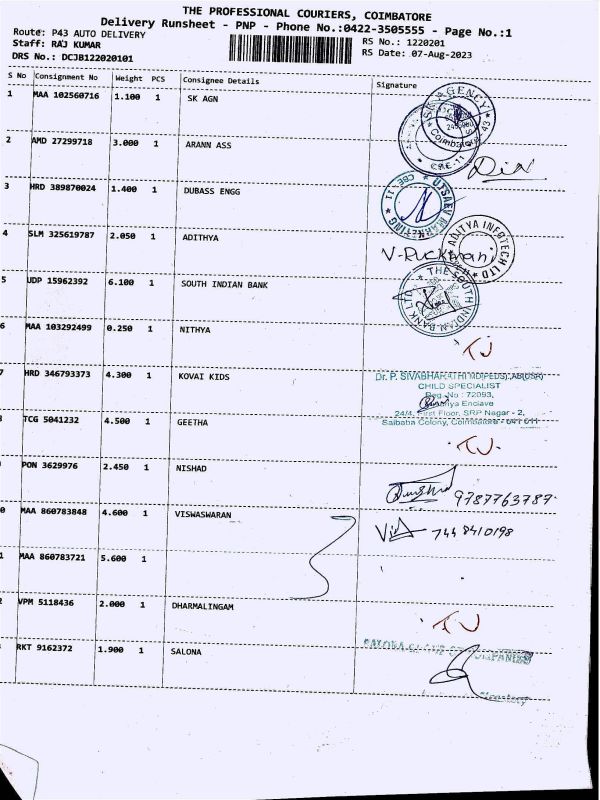 THE PROFESSIONAL COURIERS, COIMBATORE
Delivery Runsheet - PNP - Phone No.:0422-3505555 - Page No.:1
Route: P43 AUTO DELIVERY
RS No.: 1220201
Staff: RAJ KUMAR
RS Date: 07-Aug-2023
DRS No.: DCJB122020101
S No Consignment No Weight PCS Consignee Details Signature
1 MAA 102560716 1.100 1 SK AGN
SK AGENCY
Coimbatore
CBE-11
2 AMD 27299718 3.000 1 ARANN ASS
3 HRD 389870024 1.400 1 DUBASS ENGG
UTSAEV MARKETING * CBE 11 *
4 SLM 325619787 2.050 1 ADITHYA
ADITYA INFOTECH LTD
5 UDP 15962392 6.100 1 SOUTH INDIAN BANK
THE SOUTH INDIAN BANK LTD
6 MAA 103292499 0.250 1 NITHYA
TJ
7 HRD 346793373 4.300 1 KOVAI KIDS
Dr. P. SIVABHARATHI MD(PEDS)
CHILD SPECIALIST
Reg. No : 72093,
Enclave
24/4, First Floor, SRP Nagar - 2,
Saibaba Colony, Coimbatore - 641 011
TCG 5041232 4.500 1 GEETHA
TJ
PON 3629976 2.450 1 NISHAD
9787763787
0 MAA 860783848 4.600 1 VISWASWARAN
744 8410198
1 MAA 860783721 5.600 1
2 VPM 5118436 2.000 1 DHARMALINGAM
TJ
RKT 9162372 1.900 1 SALONA
SALONA GROUP OF COMPANIES